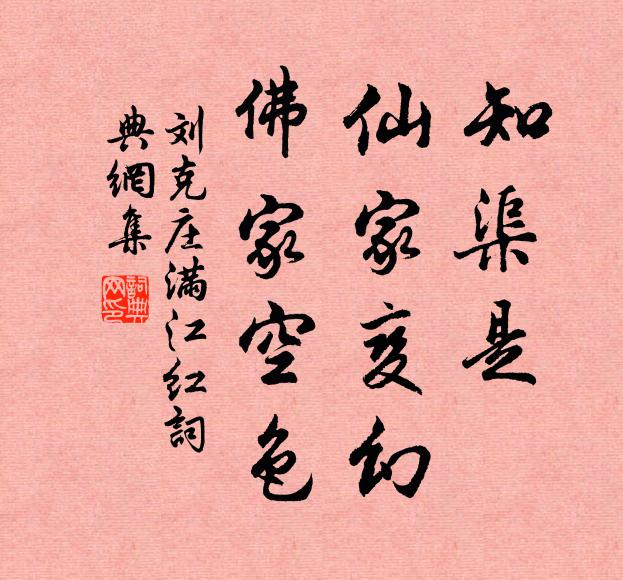 知渠是
仙家变幻
佛家空色
刘克庄满江红詞
典網集
詞典
网印